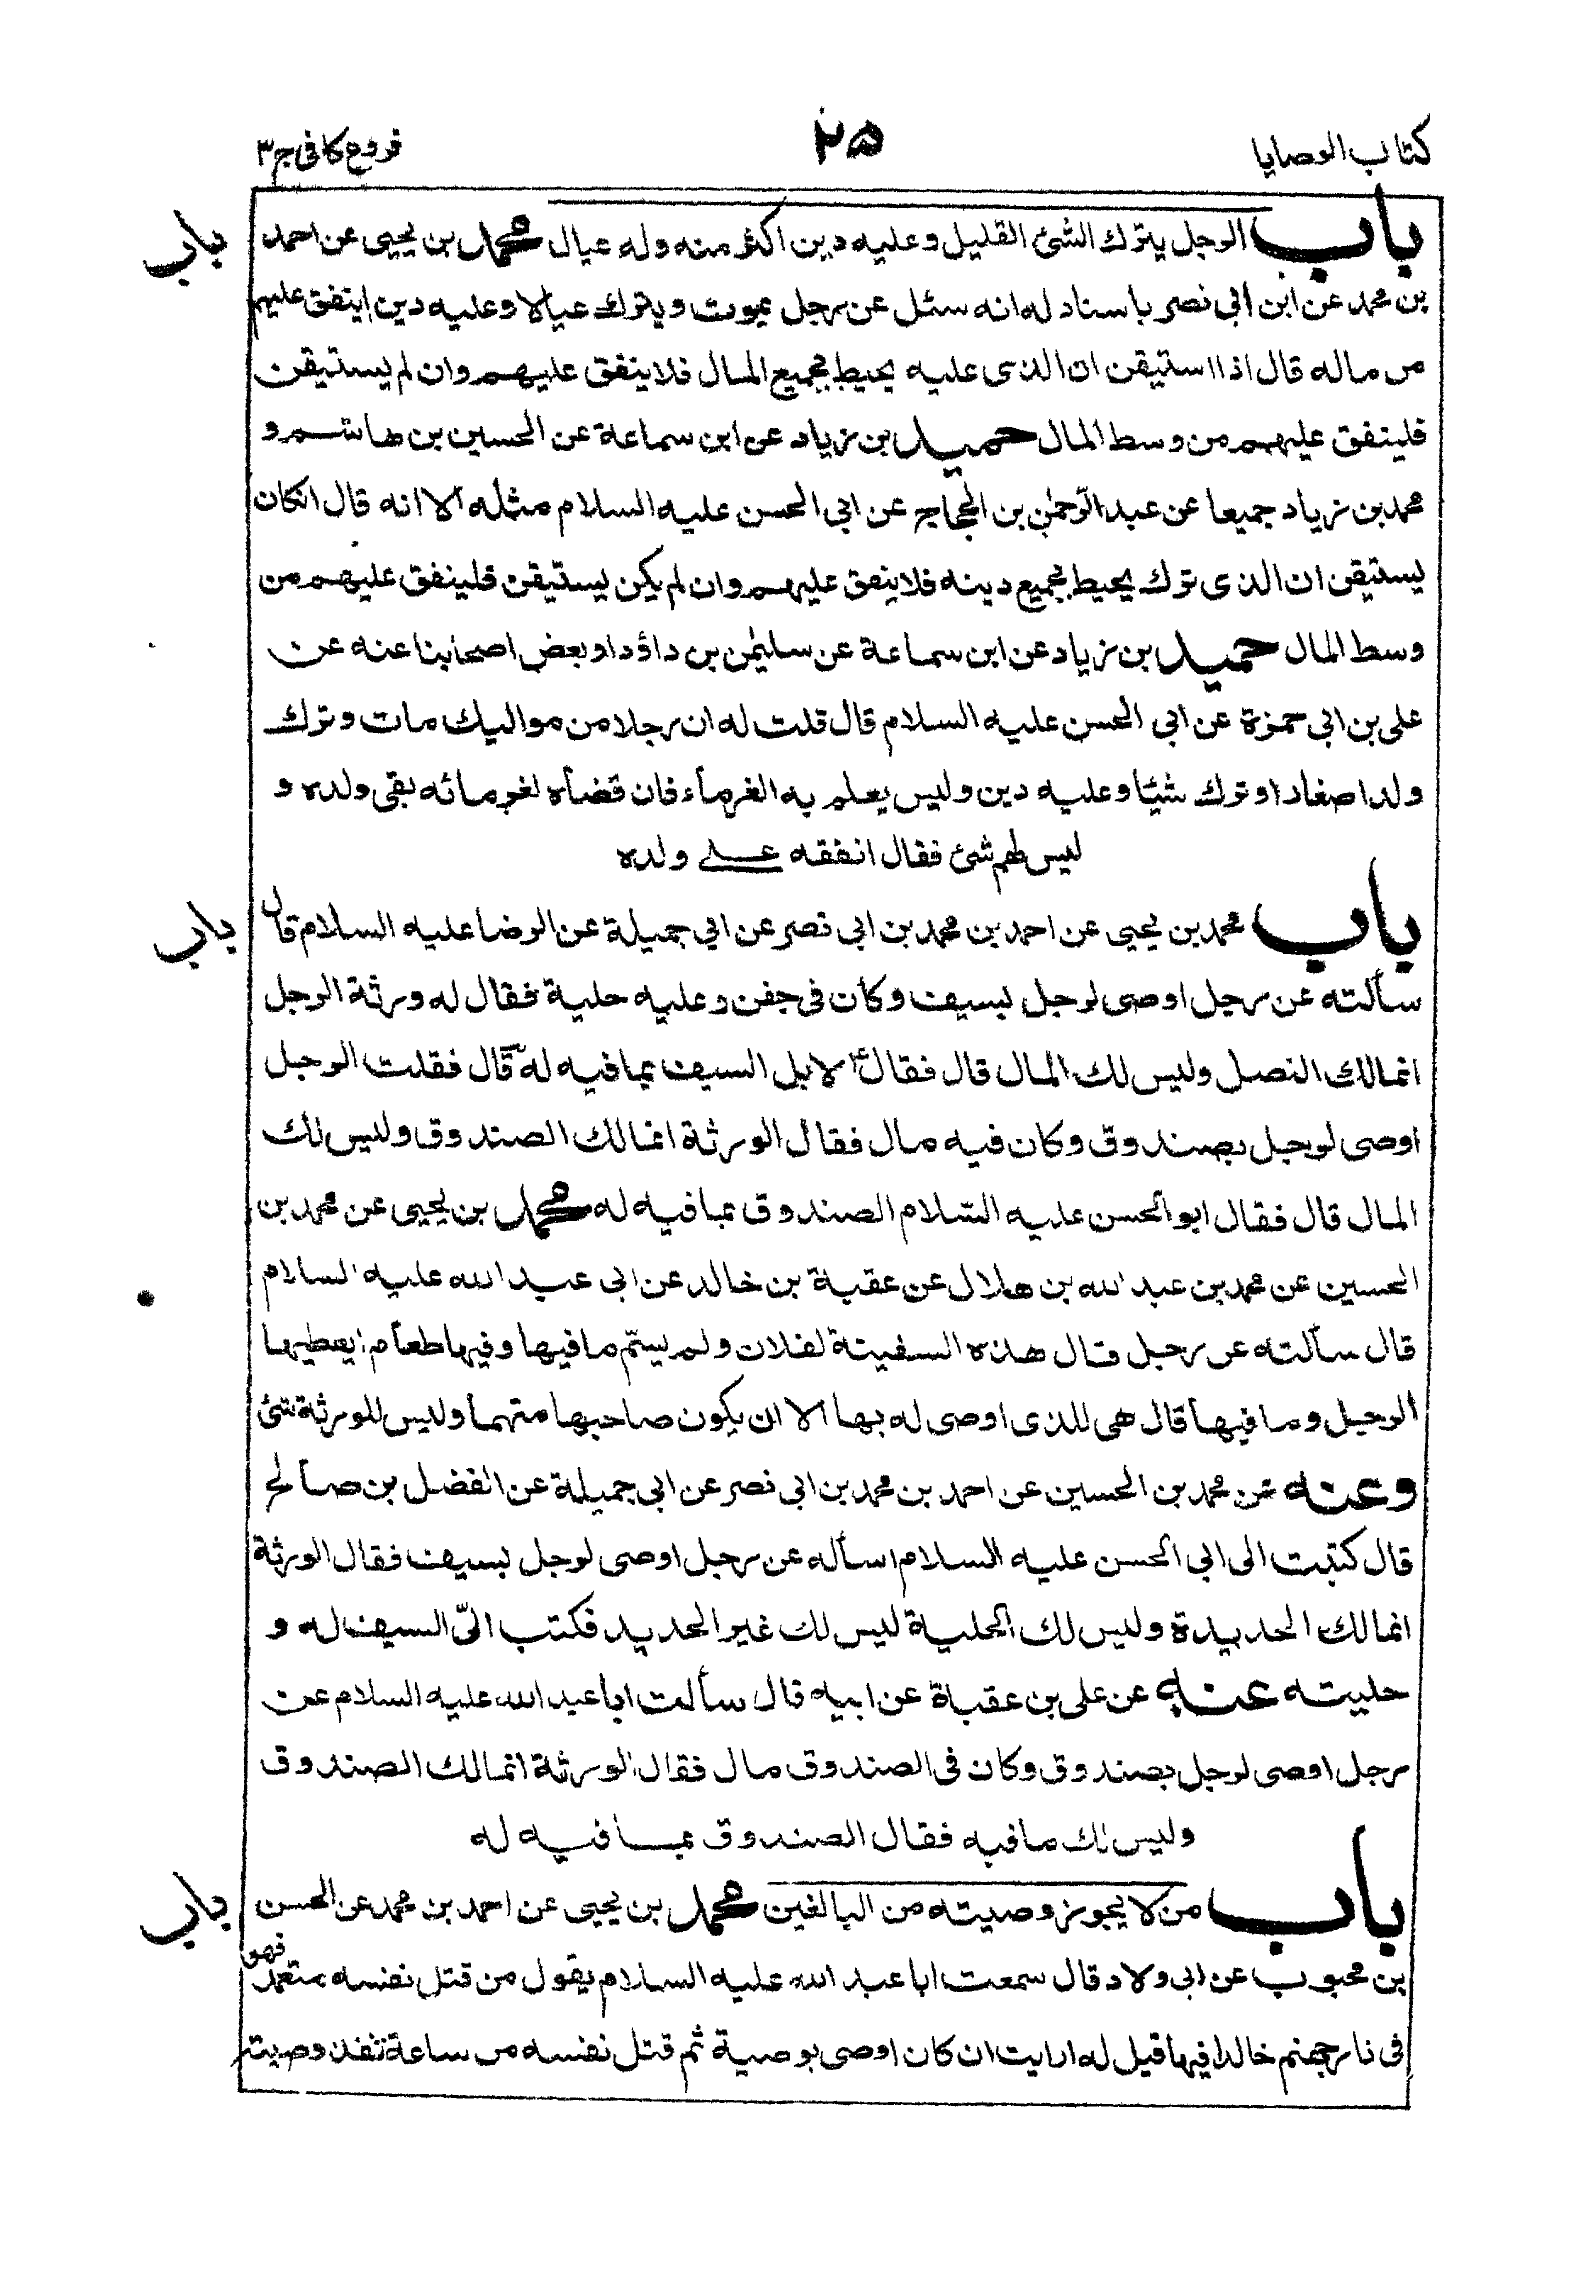 كتاب الوصايا
٢٥
فروع كافى ج ٣
باب الرجل يترك الشئ القليل وعليه دين اكثر منه وله عيال محمد بن يحيى عن احمد
باب
بن محمد عن ابن ابى نصر باسناد له انه سئل عن رجل يموت ويترك عيالا وعليه دين اينفق عليهم
من ماله قال اذا استيقن ان الذى عليه يحيط بجميع المال فلا ينفق عليهم وان لم يستيقن
فلينفق عليهم من وسط المال حميد بن زياد عن ابن سماعة عن الحسين بن هاشم و
محمد بن زياد جميعا عن عبد الرحمٰن بن الحجاج عن ابى الحسن عليه السلام مثله الا انه قال انكان
يستيقن ان الذى ترك يحيط بجميع دينه فلا ينفق عليهم وان لم يكن يستيقن فلينفق عليهم من
وسط المال حميد بن زياد عن ابن سماعة عن سليمٰن بن داؤد او بعض اصحابنا عنه عن
على بن ابى حمزة عن ابى الحسن عليه السلام قال قلت له ان رجلا من مواليك مات وترك
ولدا صغارا وترك شيئا وعليه دين وليس يعلم به الغرماء فان قضاه لغرمائه بقى ولده و
ليس لهم شئ فقال انفقه على ولده
باب محمد بن يحيى عن احمد بن محمد بن ابى نصر عن ابى جميلة عن الرضا عليه السلام قال
باب
سألته عن رجل اوصى لرجل بسيف وكان فى جفن وعليه حلية فقال له ورثة الرجل
انما لك النصل وليس لك المال قال فقال ع لا بل السيف بما فيه له قال فقلت الرجل
اوصى لرجل بصندوق وكان فيه مال فقال الورثة انما لك الصندوق وليس لك
المال قال فقال ابو الحسن عليه السلام الصندوق بما فيه له محمد بن يحيى عن محمد بن
الحسين عن محمد بن عبد الله بن هلال عن عقبة بن خالد عن ابى عبد الله عليه السلام
قال سألته عن رجل قال هذه السفينة لفلان ولم يسمّ ما فيها وفيها طعام ايعطيها
الرجل وما فيها قال هى للذى اوصى له بها الا ان يكون صاحبها متهما وليس للورثة شئ
وعنه عن محمد بن الحسين عن احمد بن محمد بن ابى نصر عن ابى جميلة عن الفضل بن صالح
قال كتبت الى ابى الحسن عليه السلام اسأله عن رجل اوصى لرجل بسيف فقال الورثة
انما لك الحديدة وليس لك الحلية ليس لك غير الحديد فكتب الىّ السيف له و
حليته عنه عن على بن عقبة عن ابيه قال سألت ابا عبد الله عليه السلام عن
رجل اوصى لرجل بصندوق وكان فى الصندوق مال فقال الورثة انما لك الصندوق
وليس لك ما فيه فقال الصندوق بما فيه له
باب من لا يجوز وصيته من البالغين محمد بن يحيى عن احمد بن محمد عن الحسن
باب
بن محبوب عن ابى ولاد قال سمعت ابا عبد الله عليه السلام يقول من قتل نفسه متعمدا فهو
فى نار جهنم خالدا فيها قيل له ارايت ان كان اوصى بوصية ثم قتل نفسه من ساعة تنفذ وصيته